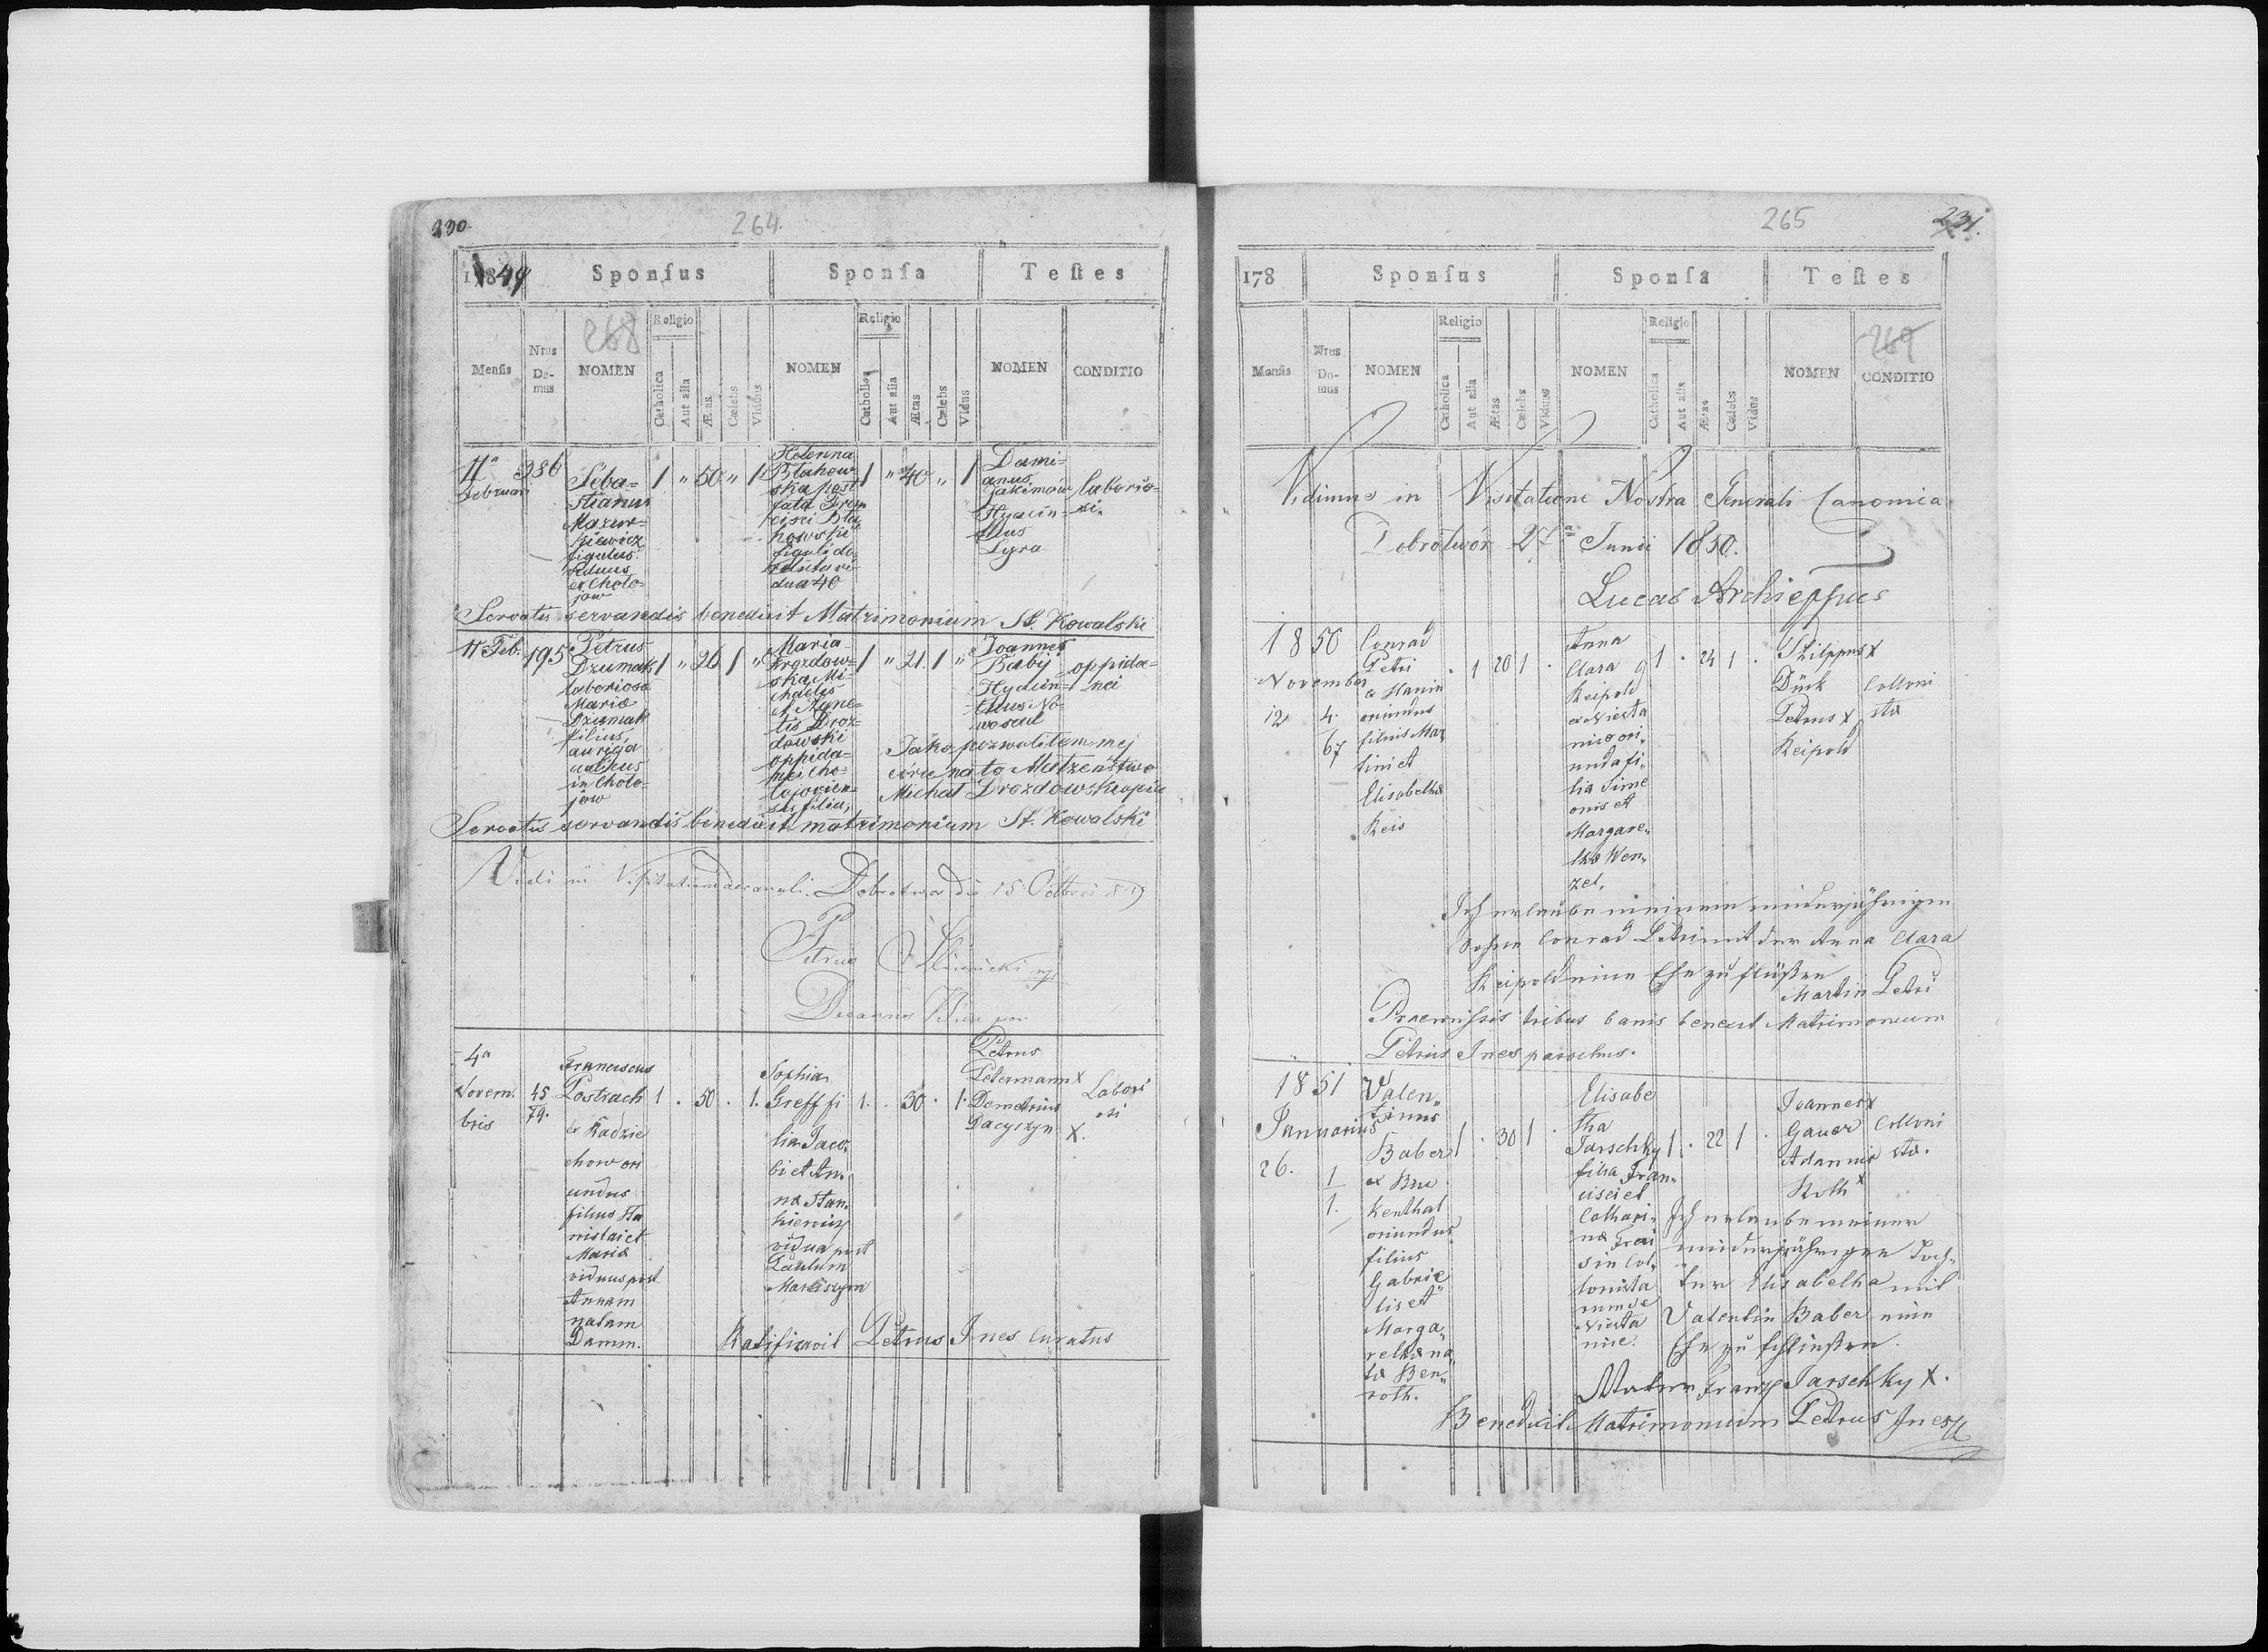 230.
264.
1849
Sponſus
Sponſa
Teſtes
268
Menſis
Nrus Do-mus
NOMEN
Religio
Catholica
Aut alia
Ætas
Cælebs
Viduus
NOMEN
Religio
Catholica
Aut alia
Ætas
Cælebs
Vidua
NOMEN
CONDITIO
11a
Februarii
386
Seba-
stianus
Mazur-
kiewicz
figulus
viduus
ex Choło-
jow
1 " 50 " 1
Helenna
Błahow-
ska post
fata Fran
cisci Bła
howski
figuli de-
relicta vi-
dua 40
1 " 40 " 1
Dami-
anus
Jakimów
Hyacin-
thus
Lyra
laborio-
si.
Servatis servandis benedixit Matrimonium St. Kowalski
11 Feb.
195
Petrus
Dzumak
laboriosa
Maria
Dzumak
filius,
auriga
in Choło-
jow
1 " 26 1 "
Maria
Drozdow-
ska Mi-
chaelis
et Agne-
tis Droz-
dowski
oppida-
nei Cho-
łojovien-
sis filia,
1 " 21 1 "
Joannes
Baby
Hyacin-
thus No-
wosad
oppida-
nei
Jako pozwoliłem mej
córce na to Małżeństwo
Michał Drozdowski
Servatis servandis benedixit matrimonium St. Kowalski
Vidi in Visitatione decanali Dobrotwor die 15 Octobris 849
Petrus
Decanus
4a
Novem.
bris
45
79.
Franciscus
Postrach
ex Radzie
chow ori
undus
filius Sta
nislai et
Maria
viduus post
Annam
natam
Damm.
1 . 50 . 1.
Sophia
Greff fi
lia Jaco,
bi et An,
na Stan,
kiewicz
vidua post
Paulum
Marciszyn
1. . 30 . 1.
Petrus
Petermann x
Demetrius
Dacyszyn
x.
Labori
osi
Ratificavit Petrus Ines Curatus
265
231.
178
Sponſus
Sponſa
Teſtes
269
Menſis
Nrus Do-mus
NOMEN
Religio
Catholica
Aut alia
Ætas
Cælebs
Viduus
NOMEN
Religio
Catholica
Aut alia
Ætas
Cælebs
Vidua
NOMEN
CONDITIO
Vidimus in Visitatione Nostra Generali Canonica
Dobrotwór 27a Junii 1850.
Lucas Archieppus
1850
November
12
4.
67
Conrad
Petri
e Hanin
oriundus
filius Mar
tini et
Elisabetha
Reis
. 1 20 1 .
Anna
Clara
Reipold
e Niesta
nice ori,
unda fi,
lia Sime
onis et
Margare,
tha Wen,
zel,
1 . 24 1 .
Philippus x
Dück
Petrus x
Reipold
Colloni
sta
Ich erlaube meinem minderjährigen
Sohne Conrad Petri mit der Anna Clara
Reipold eine Ehe zu schlüßen
Martin Petri
Praemissis tribus banis benexit Matrimonium
Petrus Ines parochus.
1851
Januarius
26.
1
1.
Valen,
tinus
Baber
ex Bru
kenthal
oriundus
filius
Gabrie
lis et
Marga,
retha na,
ta Ben,
roth.
1 . 30 1 .
Elisabe
tha
Jarschky
filia Fran,
cisci et
Cathari,
na Frei
sin Col,
lonista
rum de
Niesta
nice.
1 . 22 1 .
Joannes x
Gauer
Adamus
Roth x
Colloni
sta.
Ich erlaube meiner
minderjährigen Toch,
ter Elisabetha mit
Valentin Baber eine
Ehe zu schließen.
Vater Franz Jarschky x.
Benedixit Matrimonium Petrus Ines